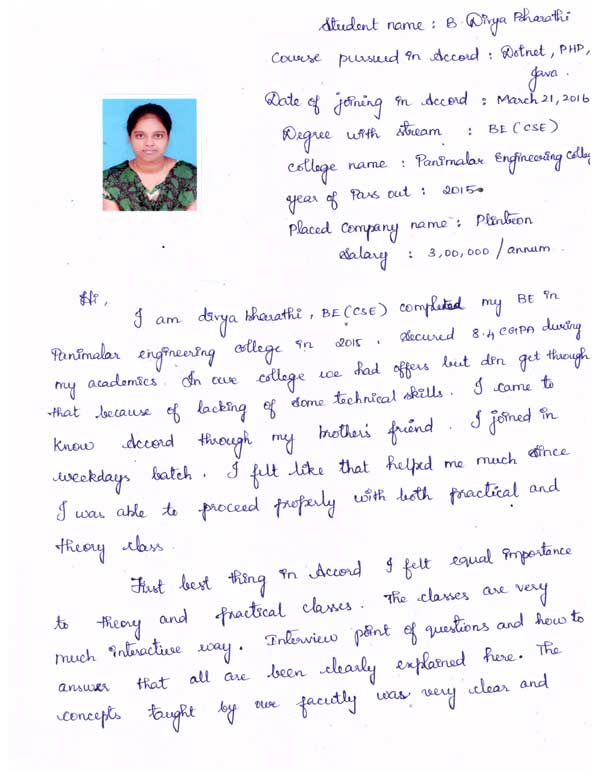 Student name : B. Divya Bharathi
Course pursued in Accord : Dotnet, PHP,
Java.
Date of joining in Accord : March 21, 2016
Degree with stream : BE (CSE)
college name : Panimalar Engineering Colleg
year of Pass out : 2015
Placed Company name :
Salary : 3,00,000 / annum.
Hi,
I am divya bharathi, BE (CSE) completed my BE in
Panimalar engineering college in 2015. Secured 8.4 CGPA during
my academics. In our college we had offers but din get through
that because of lacking of some technical skills. I came to
know Accord through my brother's friend. I joined in
weekdays batch. I felt like that helped me much since
I was able to proceed properly with both practical and
theory class.
First best thing in Accord I felt equal importance
to theory and practical classes. The classes are very
much interactive way. Interview point of questions and how to
answer that all are been clearly explained here. The
concepts taught by our facutly was very clear and